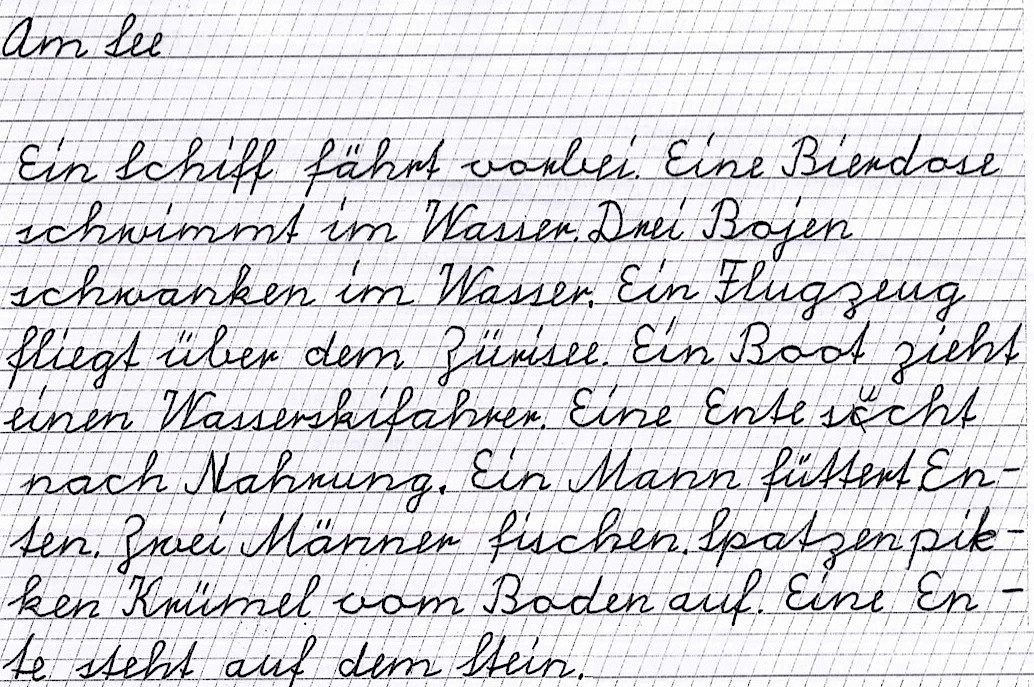 Am See
Ein Schiff fährt vorbei. Eine Bierdose
schwimmt im Wasser. Drei Bojen
schwanken im Wasser. Ein Flugzeug
fliegt über dem Zürisee. Ein Boot zieht
einen Wasserskifahrer. Eine Ente
nach Nahrung. Ein Mann füttert En-
ten. Zwei Männer fischen. Spatzen pik-
ken Krümel vom Boden auf. Eine En-
te steht auf dem Stein.